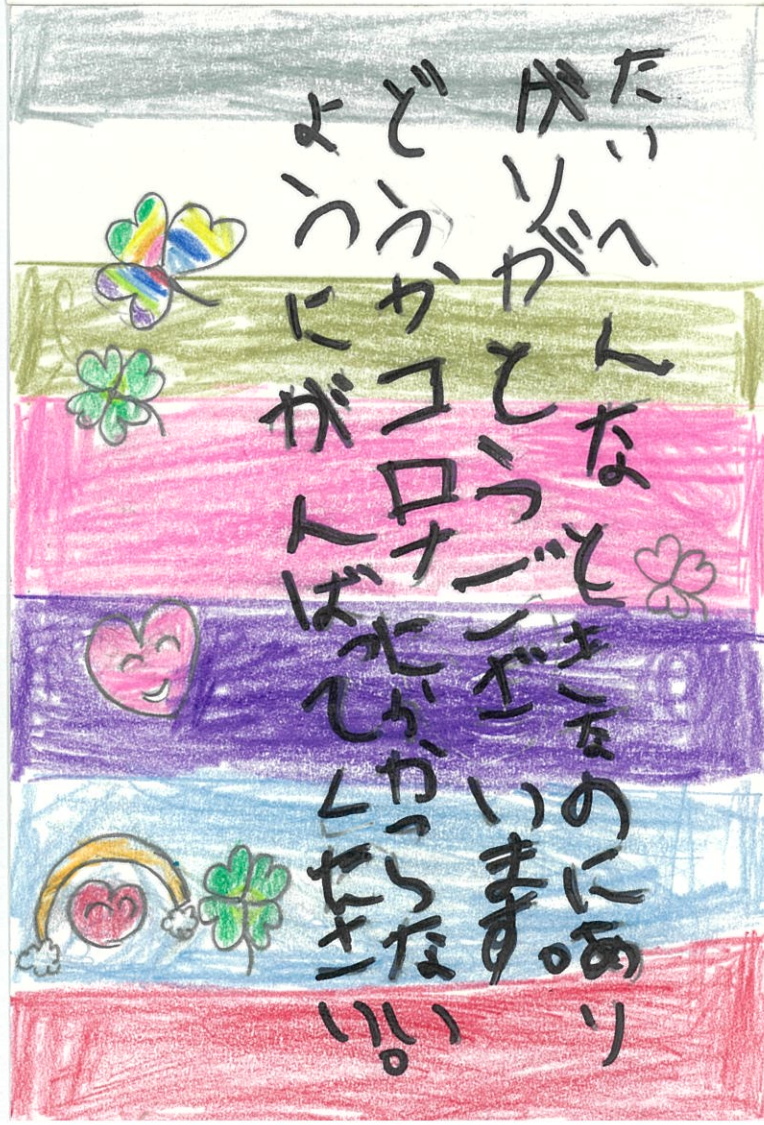 たいへんなときなのにあり
がりがとうございます。
どうかコロナにかかっらない
ようにがんばってください。